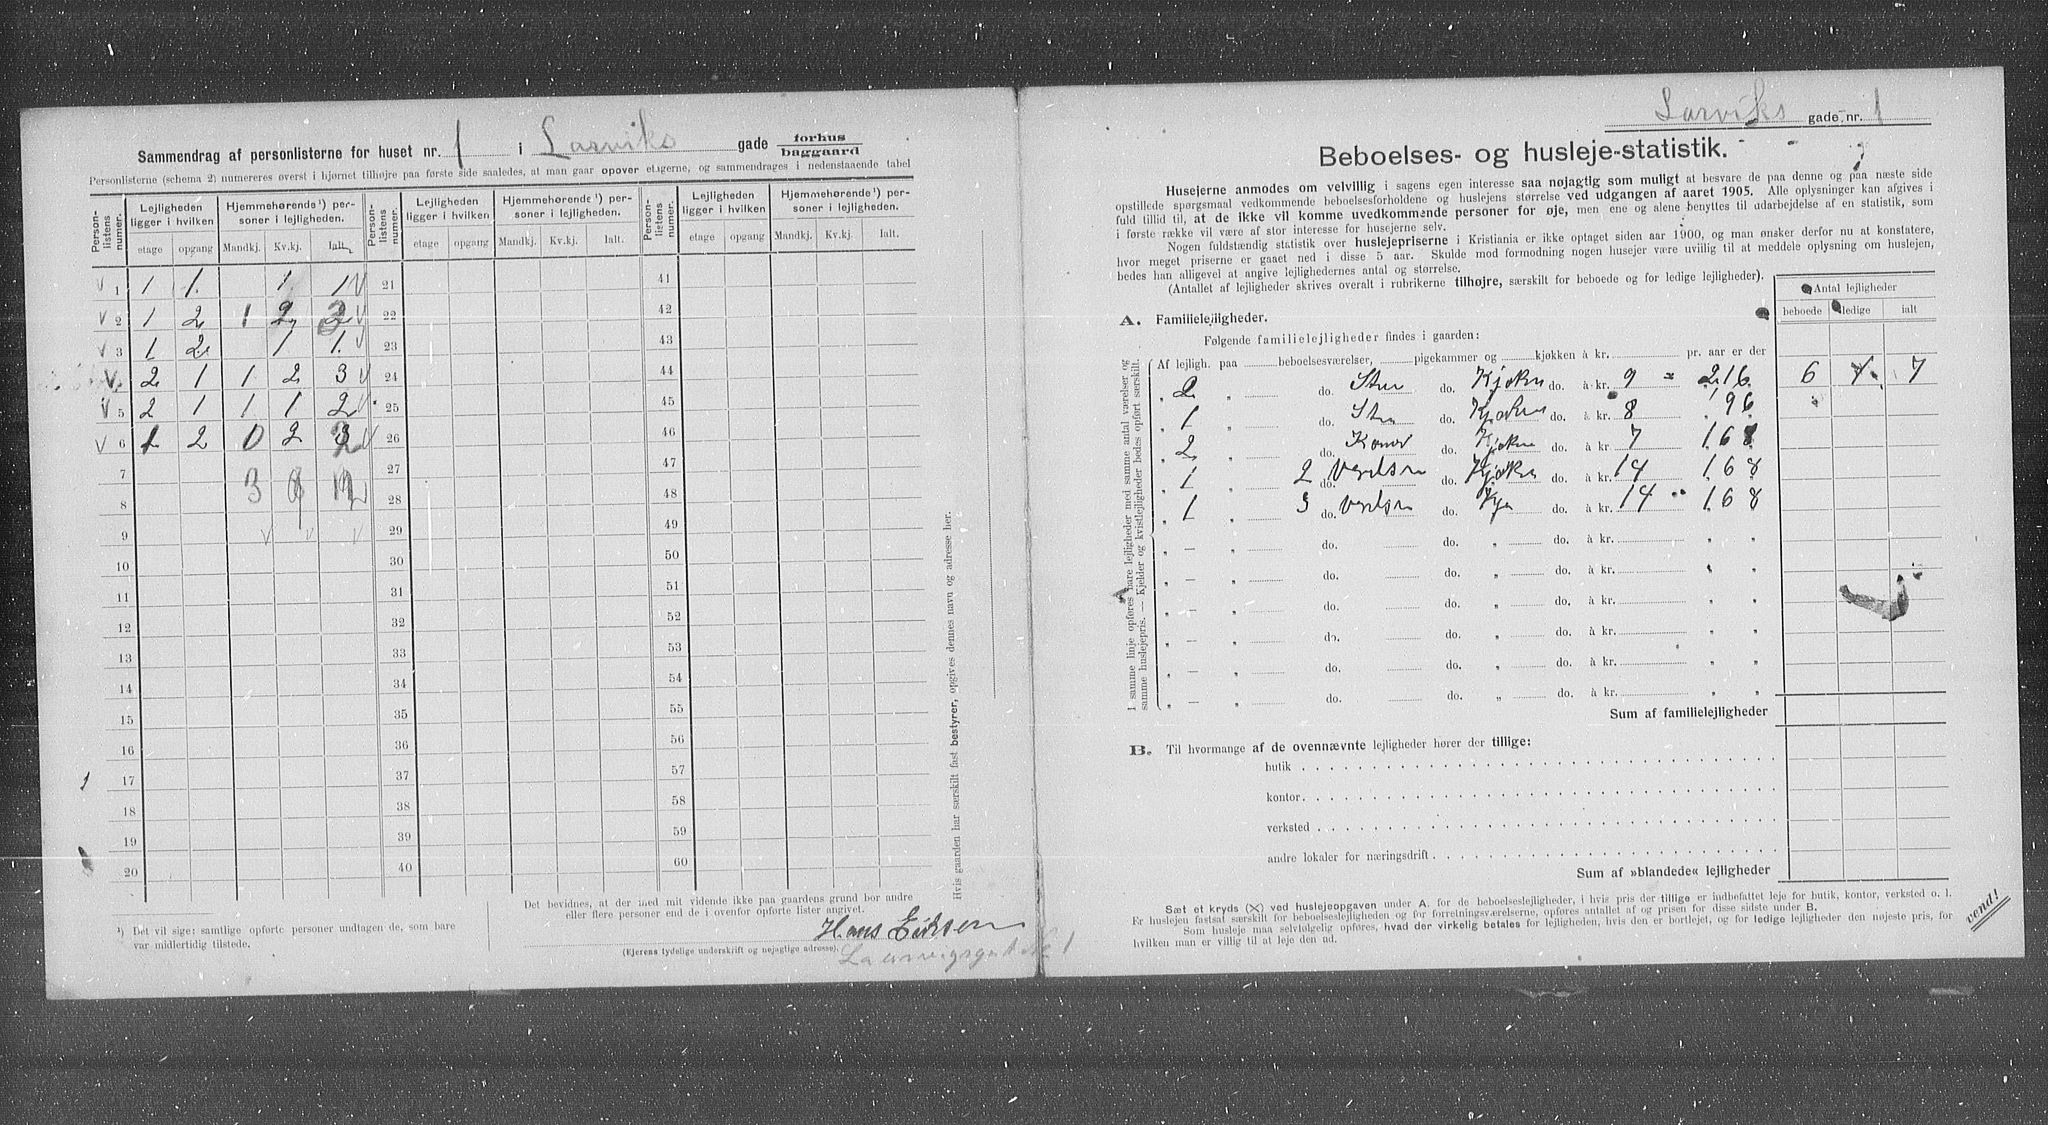 Sammendrag af personlisterne for huset nr. 1 i Larviks gade forhus baggaard
Personlisterne (schema 2) numereres øverst i hjørnet tilhøjre paa første side saaledes, at man gaar opover etagerne, og sammendrages i nedenstaaende tabel
Person-listens numer. Lejligheden ligger i hvilken Hjemmehørende¹) per-soner i lejligheden. Person-listens numer. Lejligheden ligger i hvilken Hjemmehørende¹) per-soner i lejligheden. Person-listens numer. Lejligheden ligger i hvilken Hjemmehørende¹) per-soner i lejligheden.
etage opgang Mandkj. Kv.kj. Ialt. etage opgang Mandkj. Kv.kj. Ialt. etage opgang Mandkj. Kv.kj. Ialt.
√ 1 1 1. 1 1 √ 21 41
√ 2 1 2 1 2 3 √ 22 42
√ 3 1 2 1 1. √ 23 43
√ 2 1 1 2 3 √ 24 44
√ 5 2 1 1 1 2 √ 25 45
√ 6 1 2 0 2 2 √ 26 46
7 3 12 27 47
8 28 48
9 √ √ √ 29 49
10 30 50
11 31 51
12 32 52
13 33 53
14 34 54
15 35 55
16 36 56
17 37 57
18 38 58
19 39 59
20 40 60
¹) Det vil sige: samtlige opførte personer undtagen de, som bare
var midlertidig tilstede.
Det bevidnes, at der med mit vidende ikke paa gaardens grund bor andre
eller flere personer end de i ovenfor opførte lister angivet.
Hans Eriksen
(Ejerens tydelige underskrift og nøjagtige adresse).
1
Hvis gaarden har særskilt fast bestyrer, opgives dennes navn og adresse her.
Larviks gade nr. 1
Beboelses- og husleje-statistik.
Husejerne anmodes om velvillig i sagens egen interesse saa nøjagtig som muligt at besvare de paa denne og paa næste side
opstillede spørgsmaal vedkommende beboelsesforholdene og huslejens størrelse ved udgangen af aaret 1905. Alle oplysninger kan afgives i
fuld tillid til, at de ikke vil komme uvedkommende personer for øje, men ene og alene benyttes til udarbejdelse af en statistik, som
i første række vil være af stor interesse for husejerne selv.
Nogen fuldstændig statistik over huslejepriserne i Kristiania er ikke optaget siden aar 1900, og man ønsker derfor nu at konstatere,
hvor meget priserne er gaaet ned i disse 5 aar. Skulde mod formodning nogen husejer være uvillig til at meddele oplysning om huslejen,
bedes han alligevel at angive lejlighedernes antal og størrelse.
(Antallet af lejligheder skrives overalt i rubrikerne tilhøjre, særskilt for beboede og for ledige lejligheder).
Antal lejligheder
beboede ledige ialt
A. Familielejligheder.
Følgende familielejligheder findes i gaarden:
Af lejligh. paa beboelsesværelser, pigekammer og kjøkken à kr. pr. aar er der
„ 2 „ do. Stue do. Kjøken do. à kr. 9 = 216 6 1 7
„ 1 „ do. Stue do. Kjøken do. à kr. 8 „ 96
„ 2 „ do. do. Kjøken do. à kr. 7 168
„ 1 „ 2 do. do. Kjøken do. à kr. 14 168
„ 1 „ do. do. Kjø do. à kr. 14 „ 168
„ – „ do. do. „ do. à kr. „ „
„ – „ do. do. „ do. à kr. „ „
„ – „ do. do. „ do. à kr. „ „
„ – „ do. do. „ do. à kr. „ „
„ – „ do. do. „ do. à kr. „ „
„ – „ do. do. „ do. à kr. „ „
I samme linje opføres bare lejligheder med samme antal værelser og
samme huslejepris. — Kjelder og kvistlejligheder bedes opført særskilt.
Sum af familielejligheder
B. Til hvormange af de ovennævnte lejligheder hører der tillige:
butik
kontor
verksted
andre lokaler for næringsdrift
Sum af »blandede« lejligheder
Sæt et kryds (X) ved huslejeopgaven under A. for de beboelseslejligheder, i hvis pris der tillige er indbefattet leje for butik, kontor, verksted o. l.
Er huslejen fastsat særskilt for beboelseslejligheden og for forretningsværelserne, opføres antallet af og prisen for disse sidste under B.
Som husleje maa selvfølgelig opføres, hvad der virkelig betales for lejligheden, hvis den er bortlejet, og for ledige lejligheder den nøjeste pris, for
hvilken man er villig til at leje den ud.
vend!